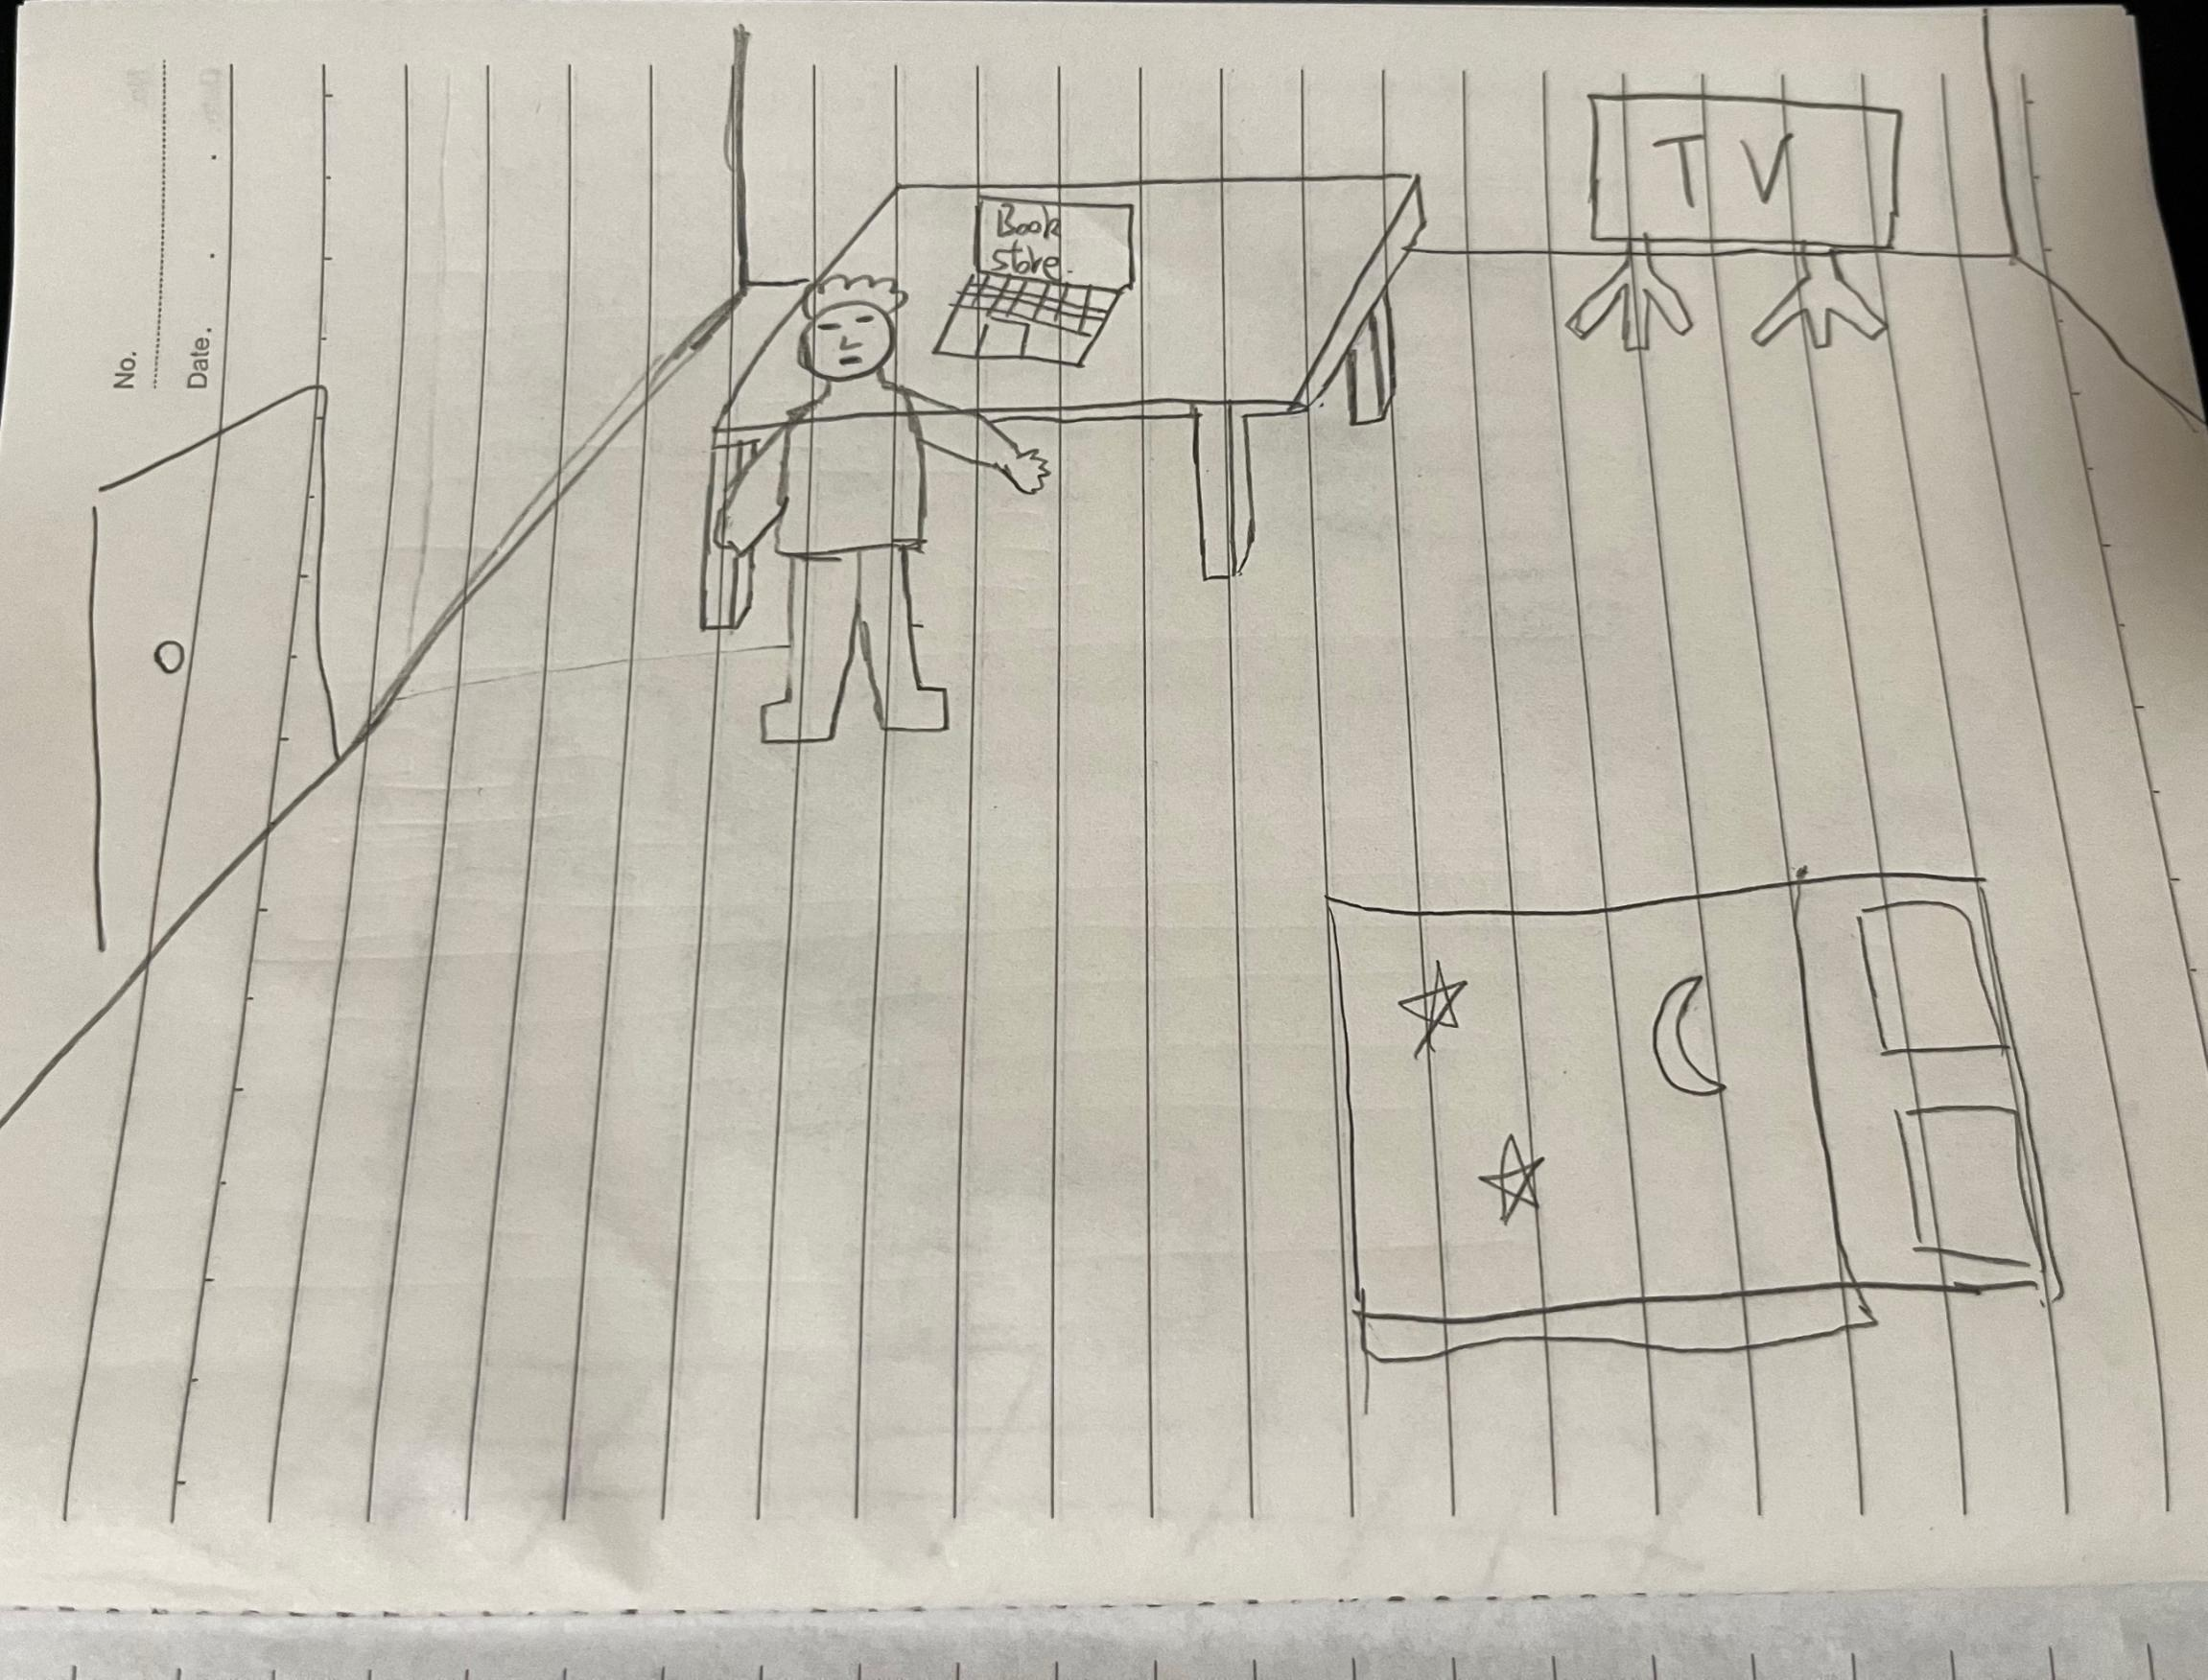 No.
Date.
Book
store.
TV